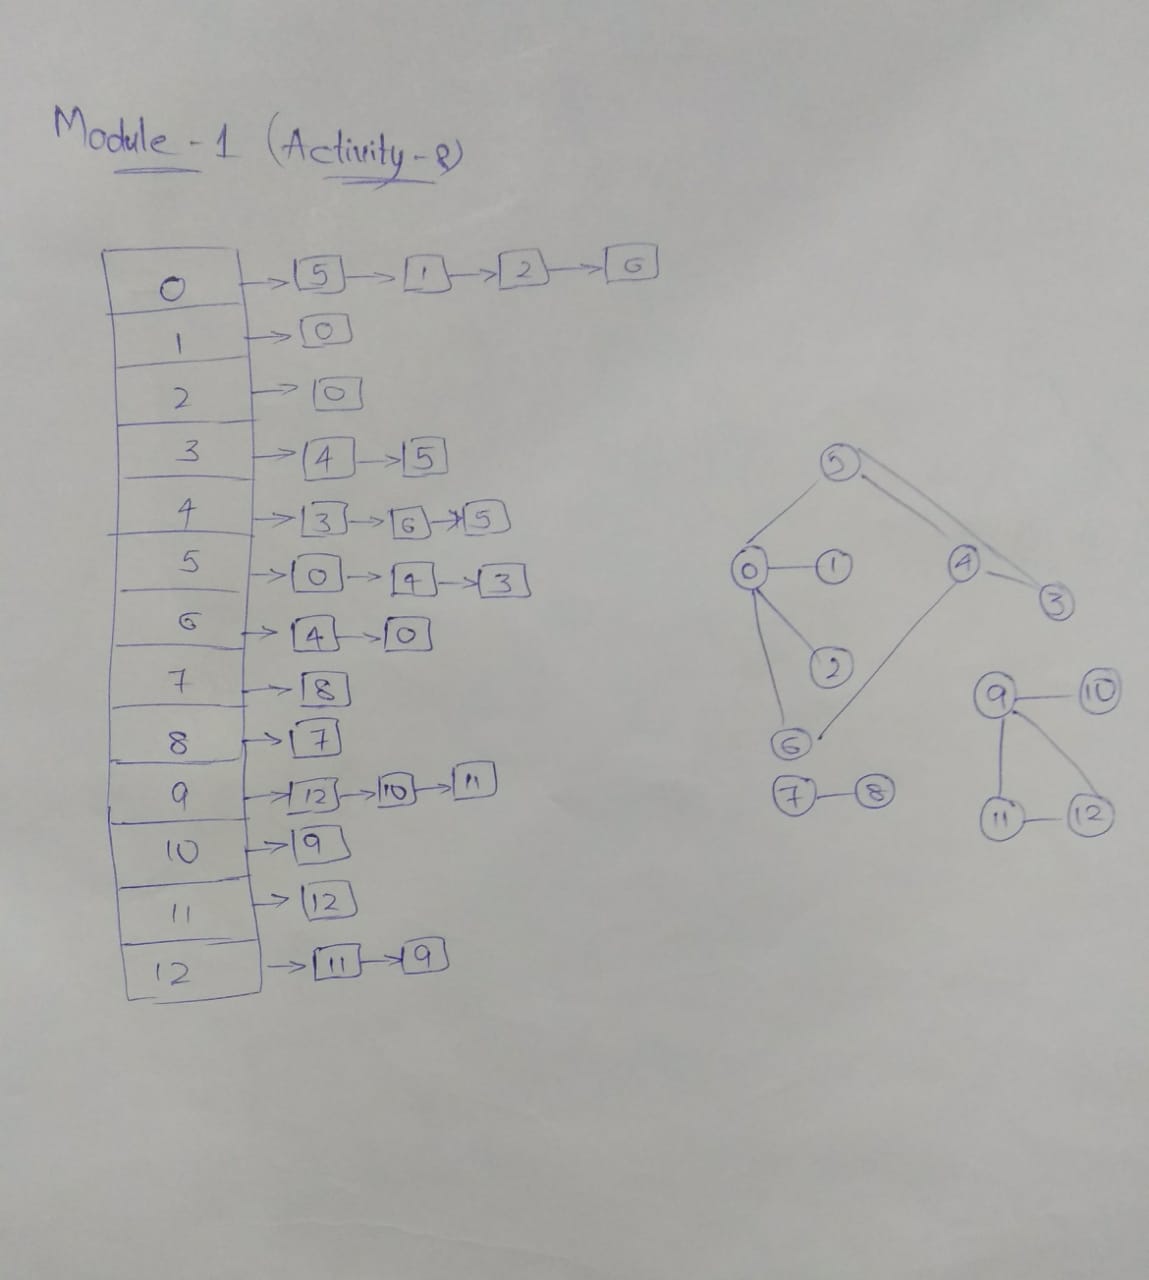 Module - 1 (Activity - 2)
0 → 5 → 1 → 2 → 6
1 → 0
2 → 0
3 → 4 → 5
4 → 3 → 6 → 5
5 → 0 → 4 → 3
6 → 4 → 0
7 → 8
8 → 7
9 → 12 → 10 → 11
10 → 9
11 → 12
12 → 11 → 9
5
0 1 4
3
2
9 10
6
7 8
11 12